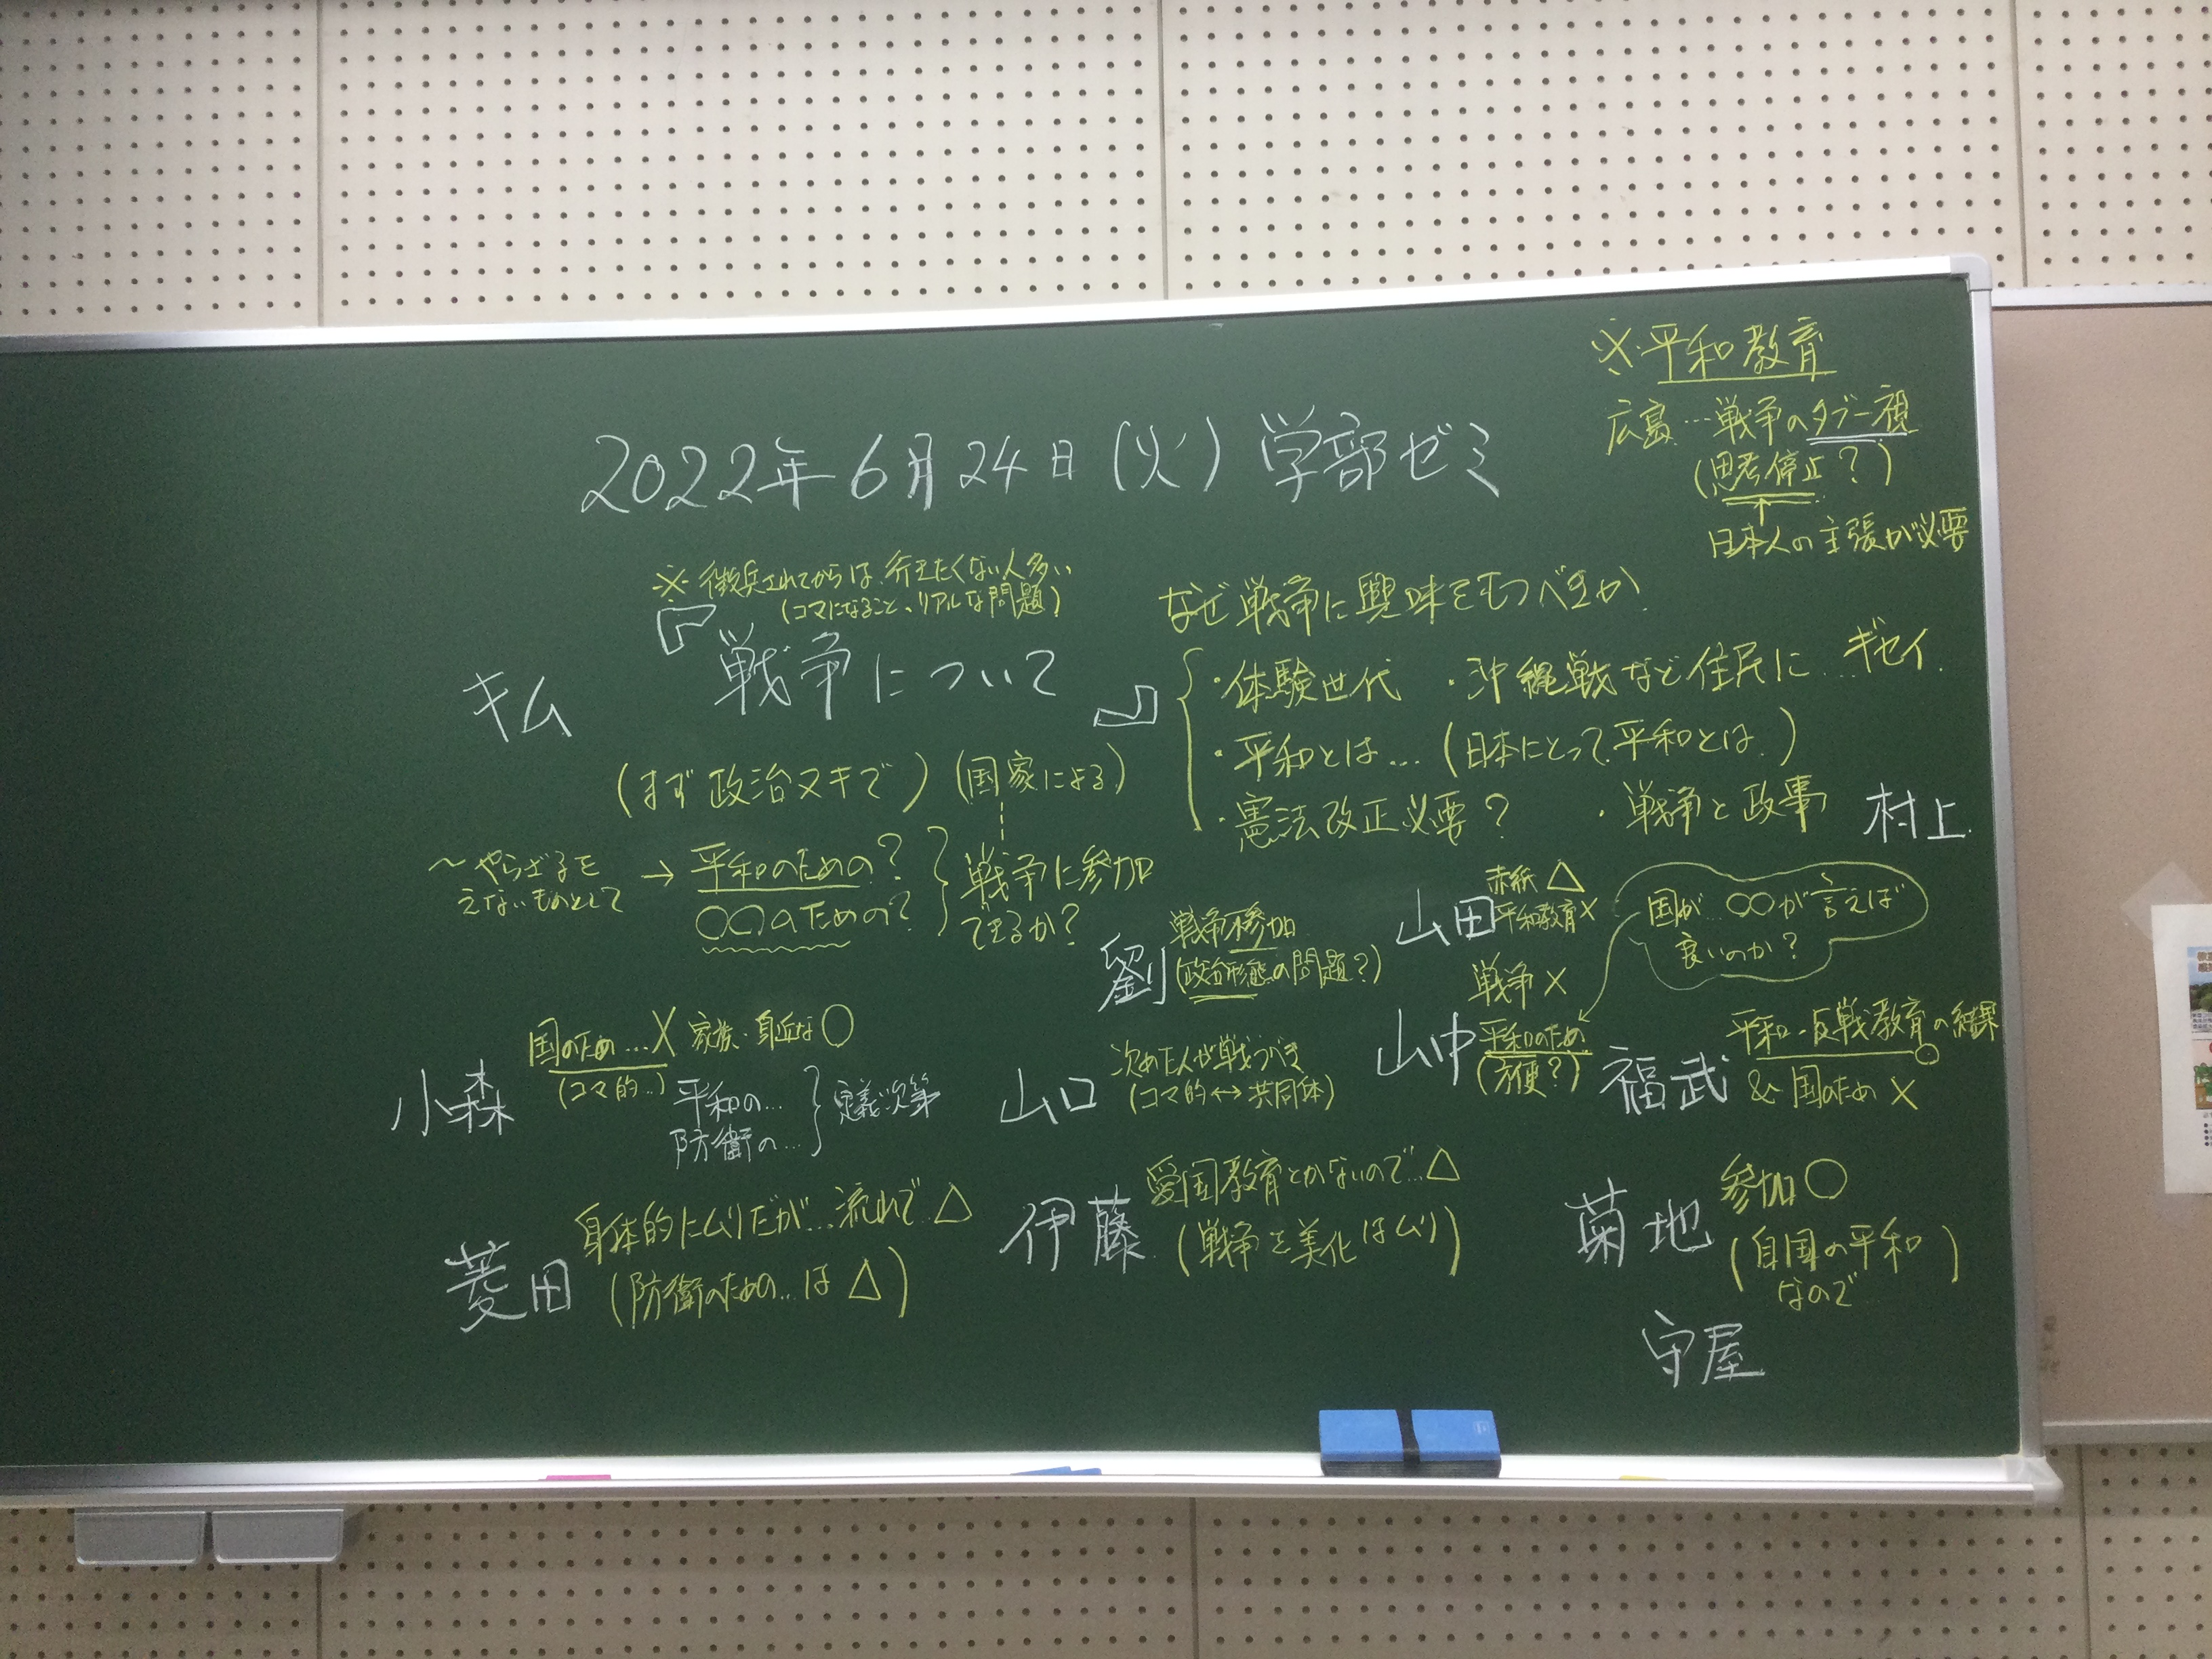 2022年6月24日(火)学部ゼミ
※平和教育
広島…戦争のタブー視
(思考停止?)
↑
日本人の主張が必要
※徴兵されてからは、行きたくない人多い
(コマになること、リアルな問題)
キム
『戦争について』
(まず政治ヌキで)(国家による)
〜やらざるを
えないものとして
→平和のための?
〇〇のための?
戦争に参加
できるか?
なぜ戦争に興味をもつべきか
・体験世代 ・沖縄戦など住民に…ギセイ.
・平和とは…(日本にとって、平和とは.)
・憲法改正必要? ・戦争と政事
村上.
劉
戦争不参加
(政治形態の問題?)
山田
赤紙△
平和教育×
国が…〇〇が言えば
良いのか?
小森
国のため…× 家族・身近な〇
(コマ的…)
平和の…
防衛の…
定義次第
山口
決めた人が戦うべき
(コマ的↔共同体)
山中
戦争×
平和のため
(方便?)
福武
平和、反戦教育の結果
&国のため×
菱田
身体的にムリだが…流れで△
(防衛のための…は△)
伊藤
愛国教育とかないので…△
(戦争を美化はムリ)
菊地
参加〇
(自国の平和
なので)
守屋